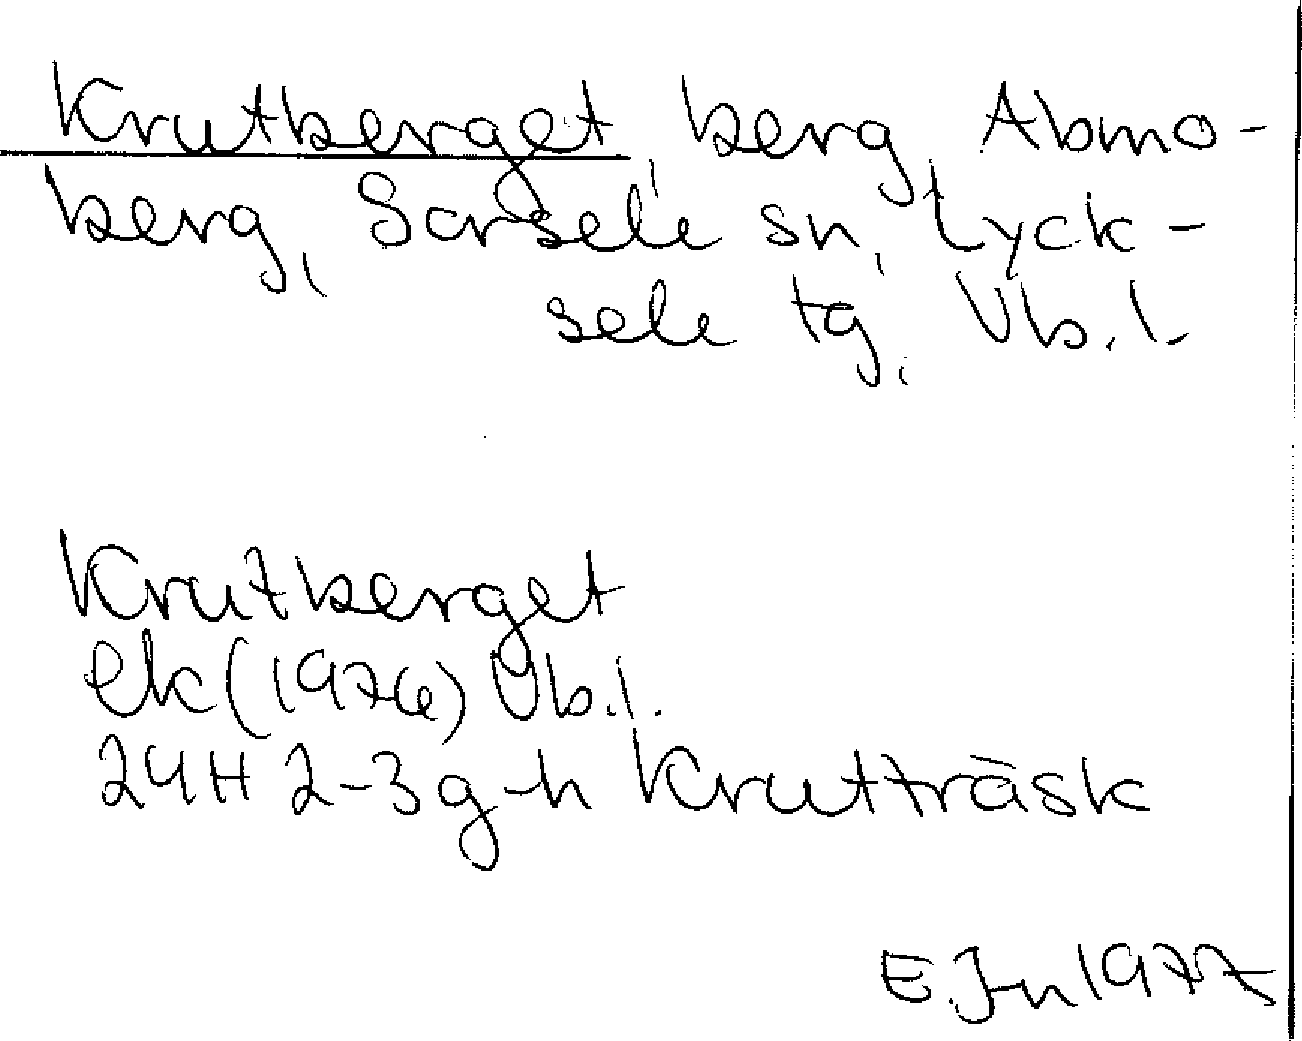 Krutberget, berg, Abmo-
berg, Sorsele sn, Lyck-
sele tg, Vb.l.
Krutberget
ek (1976) Vb.l.
24H 2-3 g-h Krutträsk
E.Jn 1977